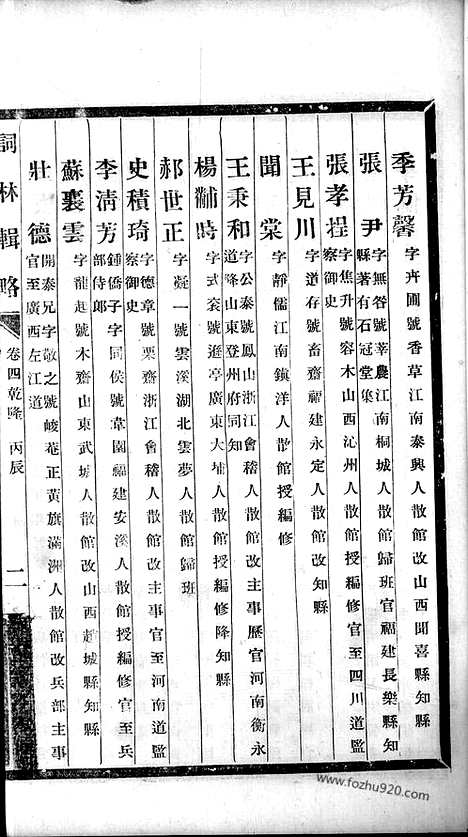 季芳馨 字卉圃號香草江南泰興人散館改山西聞喜縣知縣
張尹 字無咎號莘農江南桐城人散館歸班官福建長樂縣知
縣著有石冠堂集
張孝捏 字焦升號容木山西沁州人散館授編修官至四川道監
察御史
王見川 字道存號畜齋福建永定人散館改知縣
聞棠 字靜儒江南鎮洋人散館授編修
王秉和 字公泰號鳳山浙江會稽人散館改主事歷官河南衡永
道降山東登州府同知
楊黼時 字式袞號遜亭廣東大埔人散館授編修降知縣
郝世正 字凝一號雲溪湖北雲夢人散館歸班
史積琦 字德章號栗齋浙江會稽人散館改主事官至河南道監
察御史
李清芳 鍾僑子字同侯號韋園福建安溪人散館授編修官至兵
部侍郎
蘇襄雲 字龍起號木齋山東武城人散館改山西趙城縣知縣
壯德 開泰兄字敬之號峻菴正黃旗滿洲人散館改兵部主事
官至廣西左江道
詞林輯略 卷四乾隆 丙辰 二
https://www.fozhu920.com/